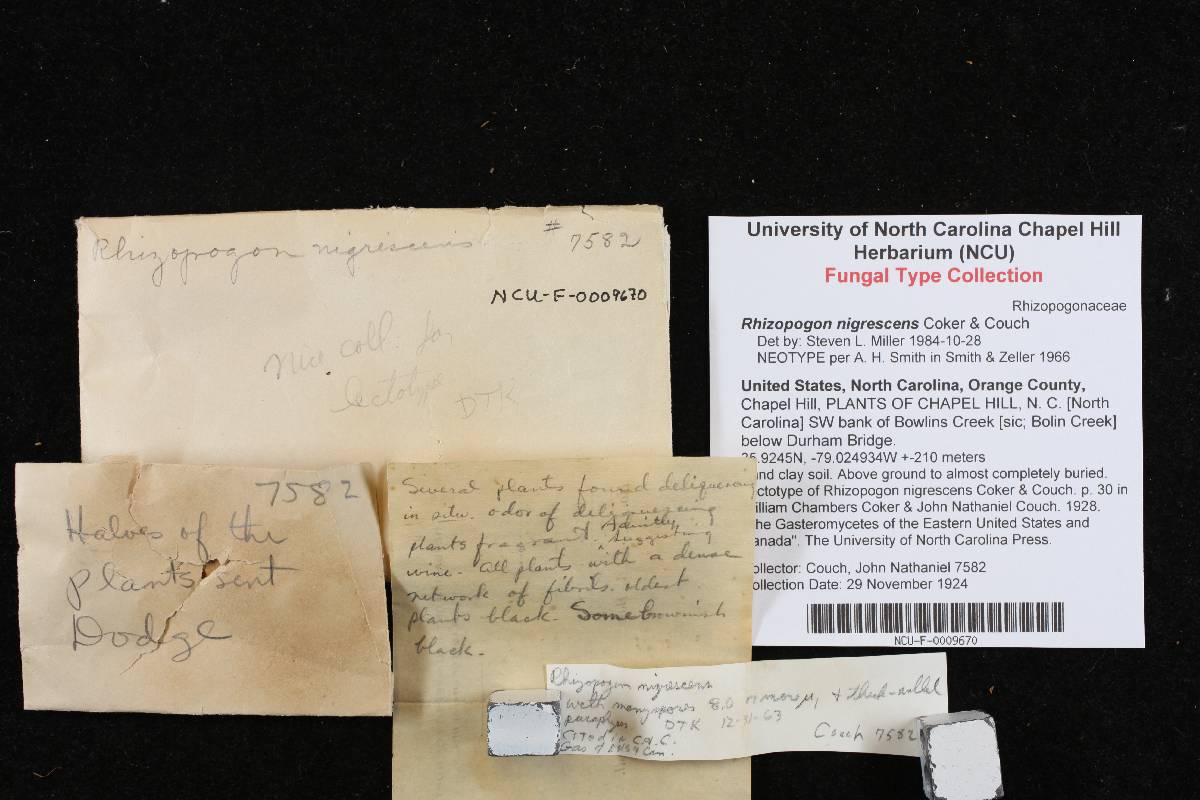 Rhizopogon nigrescens # 7582
NCU-F-0009670
Nice coll. for
lectotype DTK
7582
Halves of the
plants sent
Dodge
Several plants found deliquescing
in situ. odor of deliquescing
plants fragrant & faintly suggesting
wine. All plants with a dense
network of fibrils. oldest
plants black. Some brownish
black.
Rhizopogon nigrescens
with many spores 8.0 & thick-walled
paraphyses DTK 12-31-63
Cited in C. & C.
Gas of E US & Can.
Couch 7582
University of North Carolina Chapel Hill
Herbarium (NCU)
Fungal Type Collection
Rhizopogonaceae
Rhizopogon nigrescens Coker & Couch
Det by: Steven L. Miller 1984-10-28
NEOTYPE per A. H. Smith in Smith & Zeller 1966
United States, North Carolina, Orange County,
Chapel Hill, PLANTS OF CHAPEL HILL, N. C. [North
Carolina] SW bank of Bowlins Creek [sic; Bolin Creek]
below Durham Bridge.
5.9245N, -79.024934W +-210 meters
nd clay soil. Above ground to almost completely buried.
ctotype of Rhizopogon nigrescens Coker & Couch. p. 30 in
illiam Chambers Coker & John Nathaniel Couch. 1928.
he Gasteromycetes of the Eastern United States and
anada". The University of North Carolina Press.
ollector: Couch, John Nathaniel 7582
ollection Date: 29 November 1924
NCU-F-0009670